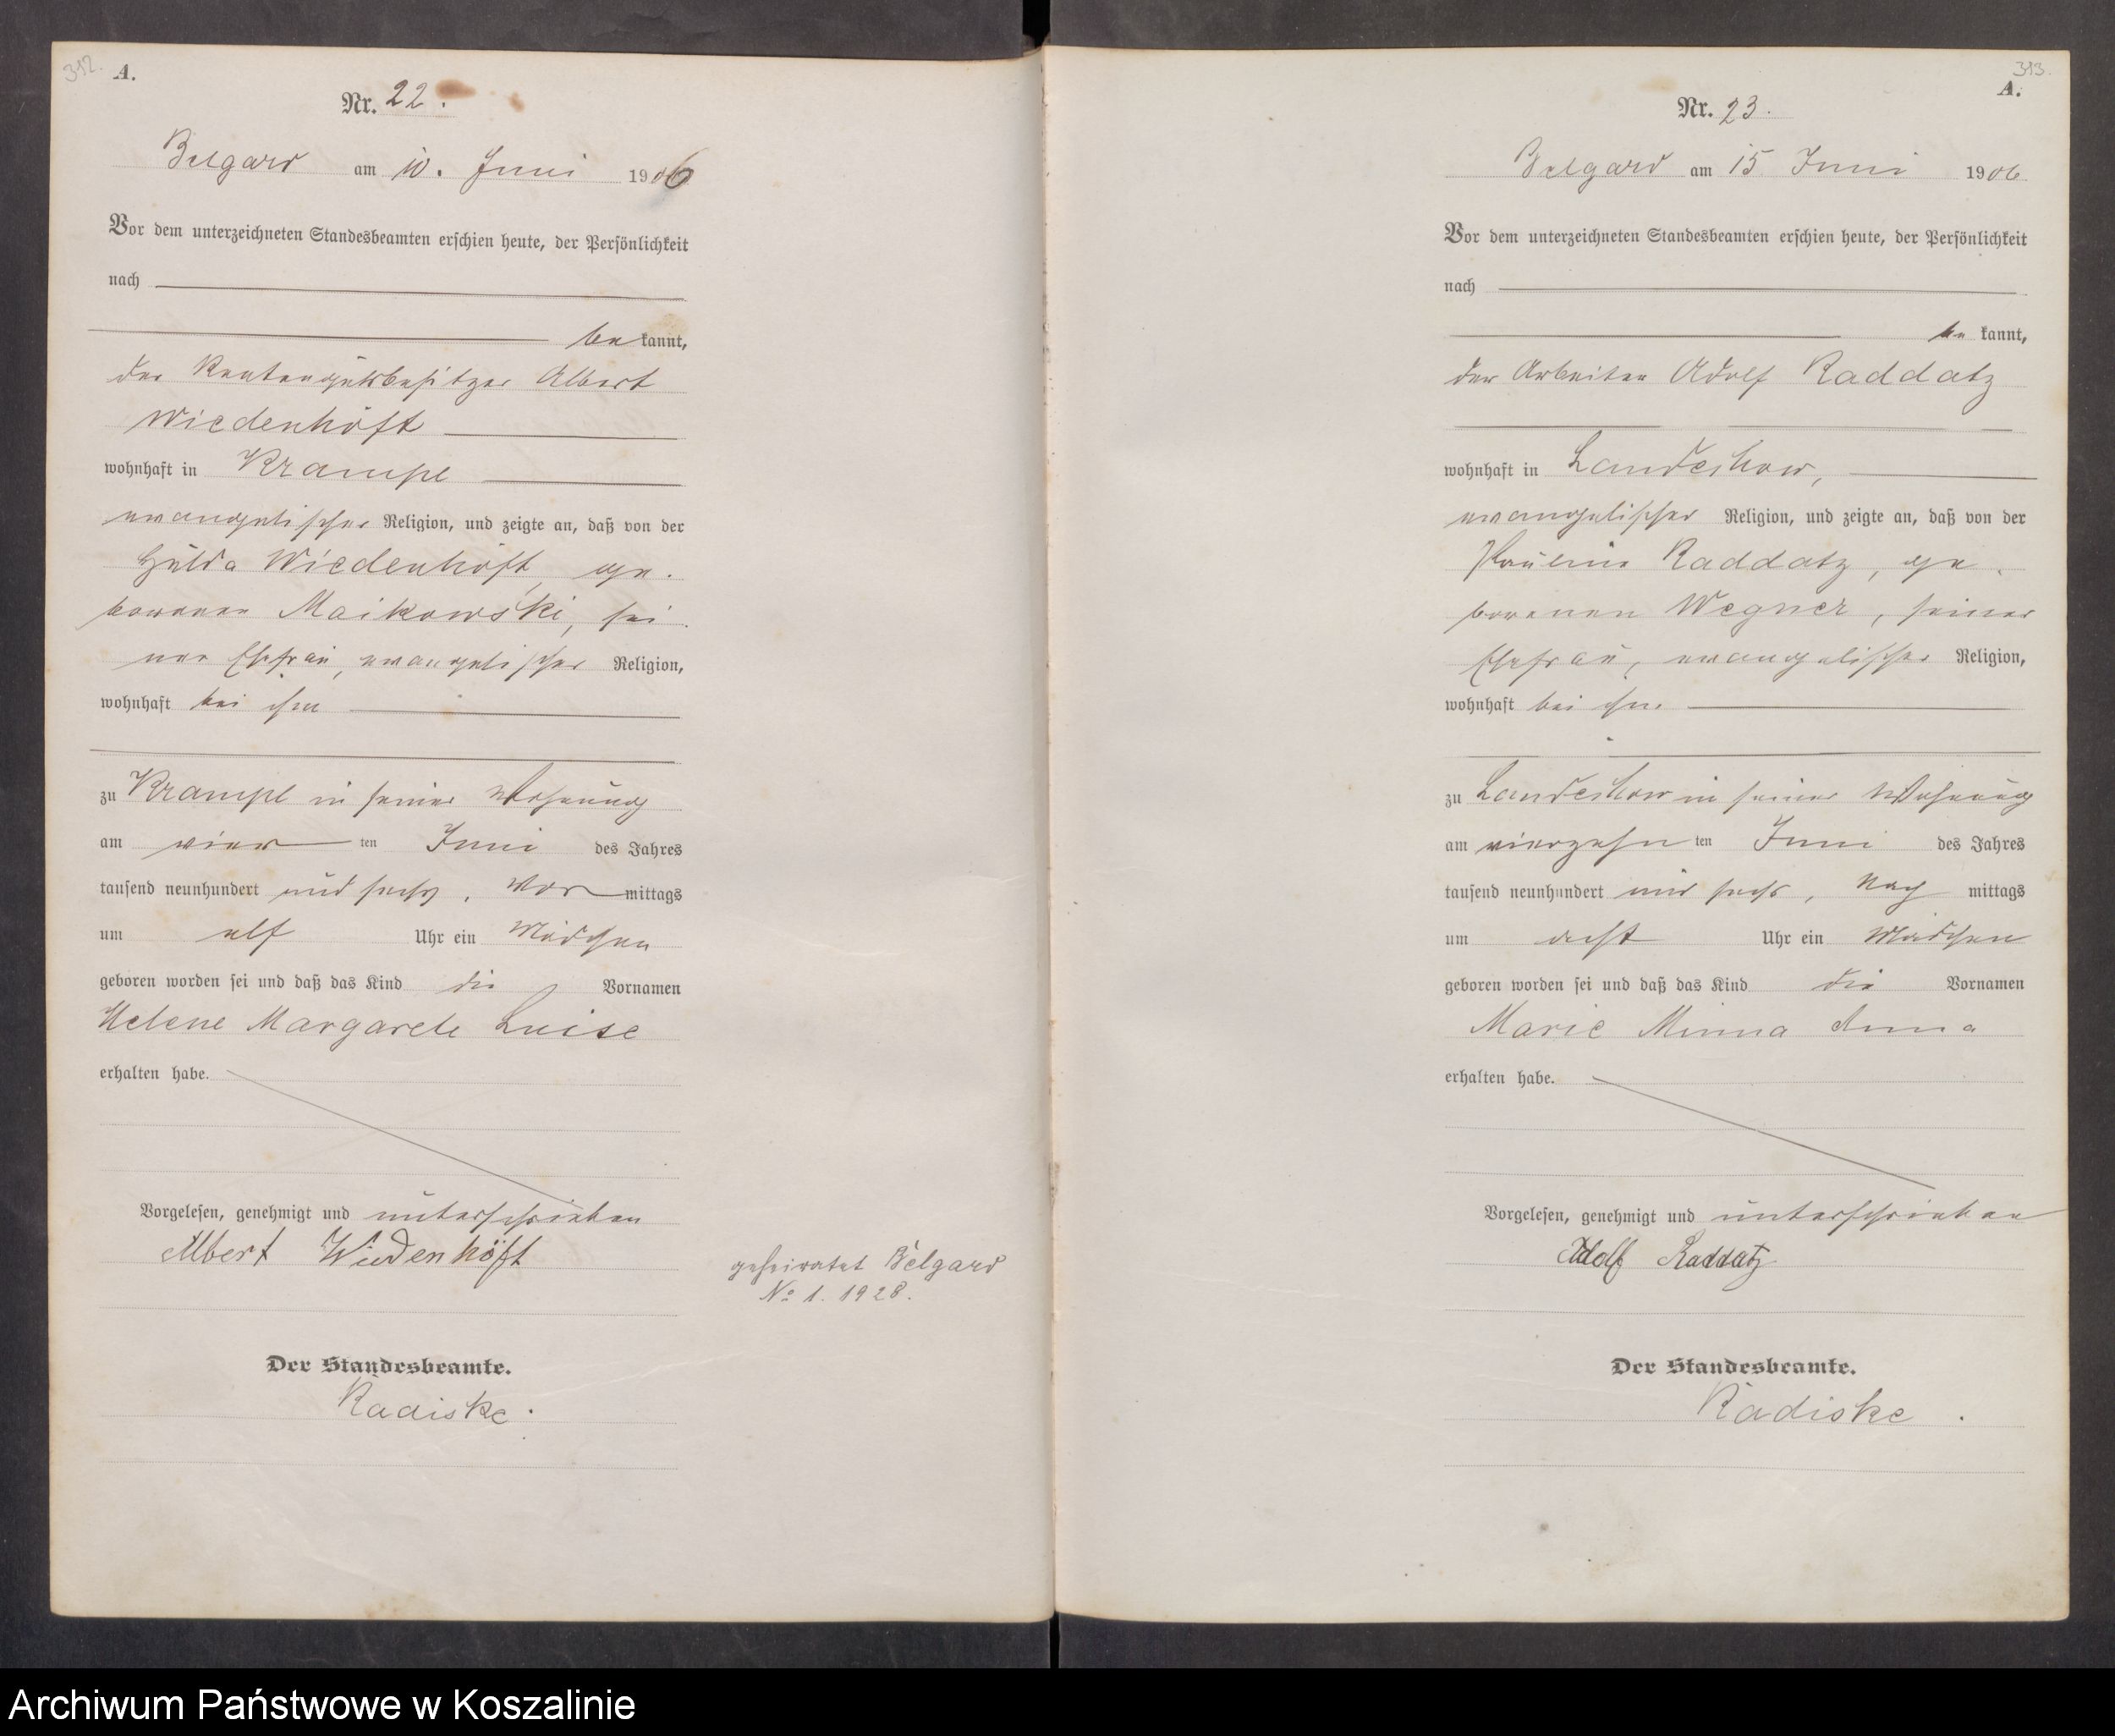 312.
A.
Nr. 22.
Belgard am 10. Juni 1906
Vor dem unterzeichneten Standesbeamten erschien heute, der Persönlichkeit
nach
be kannt,
der Rentengutsbesitzer Albert
Wiedenhöft
wohnhaft in Krampe
evangelischer Religion, und zeigte an, daß von der
Hulda Wiedenhöft, ge-
borenen Maikowski, sei-
ner Ehefrau, evangelischer Religion,
wohnhaft bei ihm
zu Krampe in seiner Wohnung
am vier ten Juni des Jahres
tausend neunhundert und sechs, Vor mittags
um elf Uhr ein Mädchen
geboren worden sei und daß das Kind die Vornamen
Helene Margarete Luise
erhalten habe.
Vorgelesen, genehmigt und unterschrieben
Albert Wiedenhöft
geheiratet Belgard
No 1. 1928.
Der Standesbeamte.
Radiske.
313.
A.
Nr. 23.
Belgard am 15 Juni 1906
Vor dem unterzeichneten Standesbeamten erschien heute, der Persönlichkeit
nach
be kannt,
der Arbeiter Adolf Raddatz
wohnhaft in Landechow,
evangelischer Religion, und zeigte an, daß von der
Pauline Raddatz, ge-
borenen Wegner, seiner
Ehefrau, evangelischer Religion,
wohnhaft bei ihm
zu Landechow in seiner Wohnung
am vierzehn ten Juni des Jahres
tausend neunhundert und sechs, Nach mittags
um acht Uhr ein Mädchen
geboren worden sei und daß das Kind die Vornamen
Marie Minna Anna
erhalten habe.
Vorgelesen, genehmigt und unterschrieben
Adolf Raddatz
Der Standesbeamte.
Radiske.
Archiwum Państwowe w Koszalinie